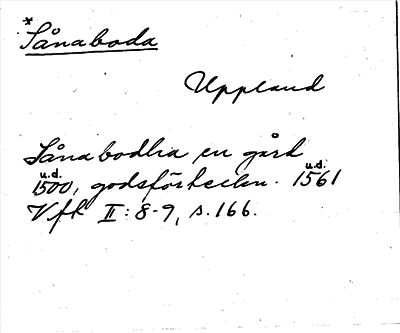 *Sånaboda
Uppland
Sånabodha en gård
u.d. 1500, godsförteckn. u.d. 1561
Vfk II: 8-9, s. 166.